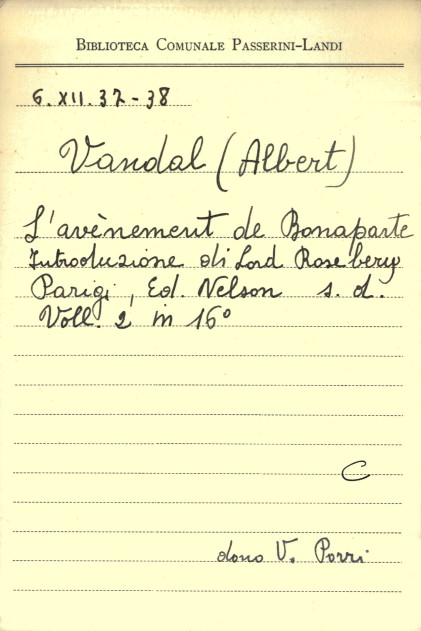 BIBLIOTECA COMUNALE PASSERINI-LANDI
6. XII. 37-38
Vandal (Albert)
L'avènement de Bonaparte
Introduzione di Lord Rosebery
Parigi, Ed. Nelson s. d.
Voll. 2 in 16°
C
dono V. Porri